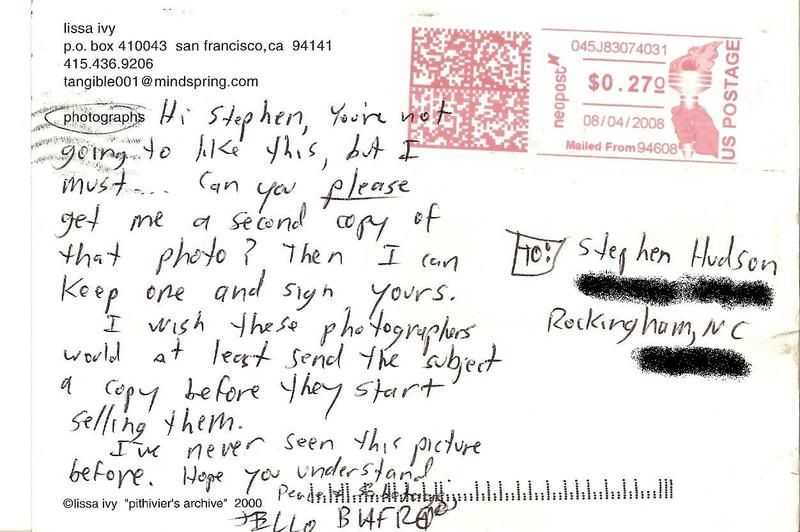 lissa ivy
p.o. box 410043 san francisco, ca 94141
415.436.9206
tangible001@mindspring.com
photographs Hi Stephen, You're not
going to like this, but I
must... Can you please
get me a second copy of
that photo? Then I can
Keep one and sign yours.
I wish these photographers
would at least send the subject
a copy before they start
selling them.
I've never seen this picture
before. Hope you understand.
©lissa ivy "pithivier's archive" 2000
JELLO BIAFRA
neopost
045J83074031
$0.270
08/04/2008
Mailed From 94608
US POSTAGE
TO: Stephen Hudson
Rockingham, NC